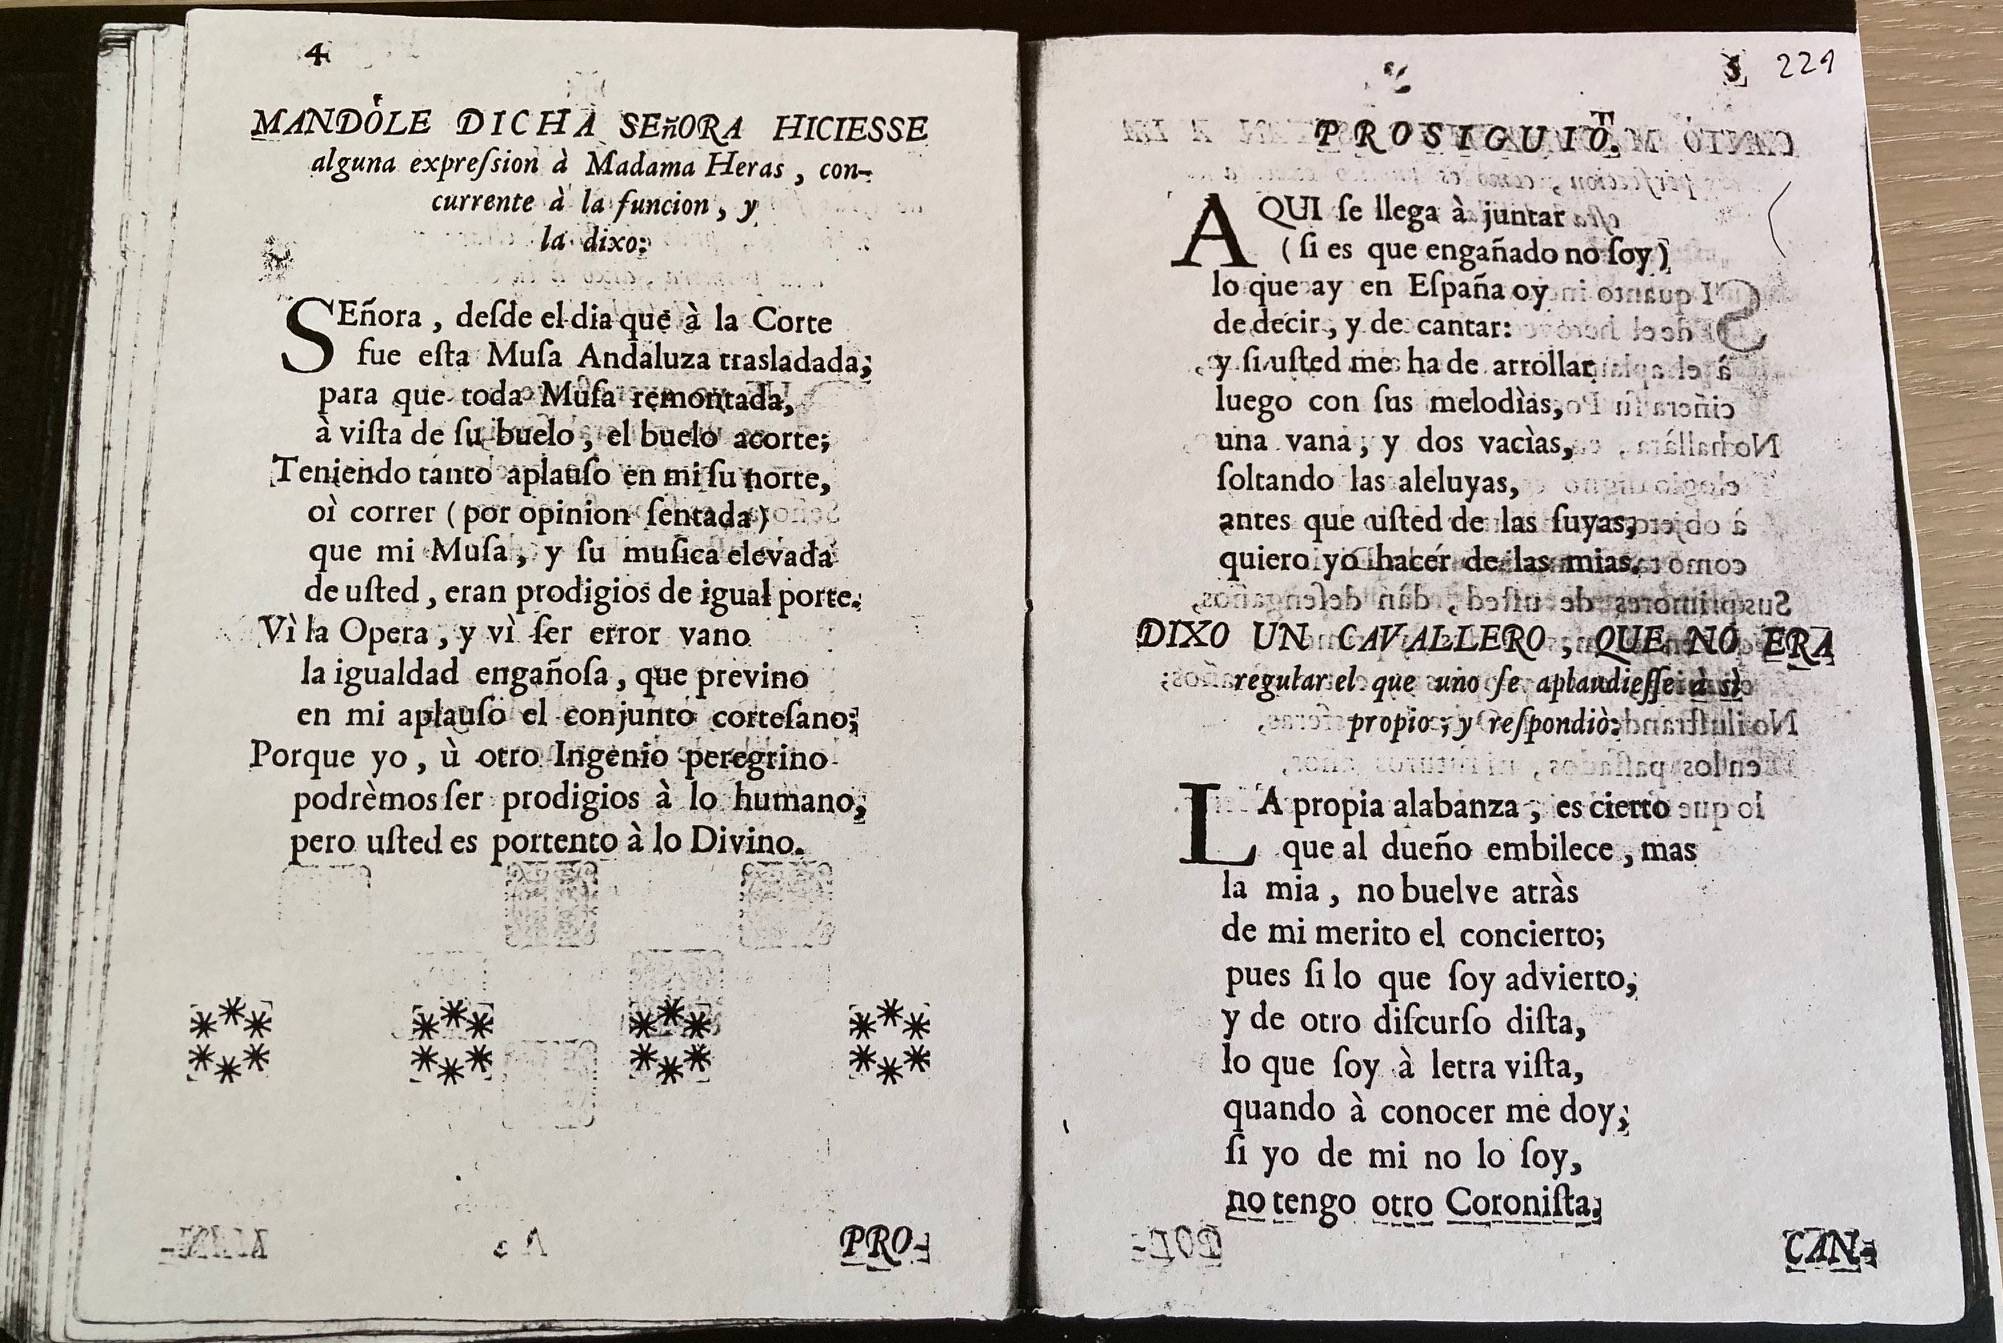 4
MANDÒLE DICHA SEñORA HICIESSE
alguna expreſsion à Madama Heras, con-
currente à la funcion, y
la dixo:
SEñora, deſde el dia que à la Corte
fue eſta Muſa Andaluza trasladada;
para que toda Muſa remontada,
à viſta de ſu buelo, el buelo acorte;
Teniendo tanto aplauſo en mi ſu norte,
oì correr (por opinion ſentada)
que mi Muſa, y ſu muſica elevada
de uſted, eran prodigios de igual porte.
Vì la Opera, y vì ſer error vano
la igualdad engañoſa, que previno
en mi aplauſo el conjunto corteſano;
Porque yo, ù otro Ingenio peregrino
podrèmos ſer prodigios à lo humano,
pero uſted es portento à lo Divino.
PRO-
5 221
PROSIGUIÒ.
AQUI ſe llega à juntar
(ſi es que engañado no ſoy)
lo que ay en Eſpaña oy
de decir, y de cantar:
y ſi uſted me ha de arrollar
luego con ſus melodìas,
una vana, y dos vacìas,
ſoltando las aleluyas,
antes que uſted de las ſuyas,
quiero yo hacer de las mias.
DIXO UN CAVALLERO, QUE NO ERA
regular el que uno ſe aplaudieſſe à sì
propio; y reſpondiò:
LA propia alabanza, es cierto
que al dueño embilece, mas
la mia, no buelve atràs
de mi merito el concierto;
pues ſi lo que ſoy advierto,
y de otro diſcurſo diſta,
lo que ſoy à letra viſta,
quando à conocer me doy;
ſi yo de mi no lo ſoy,
no tengo otro Coroniſta.
CAN-